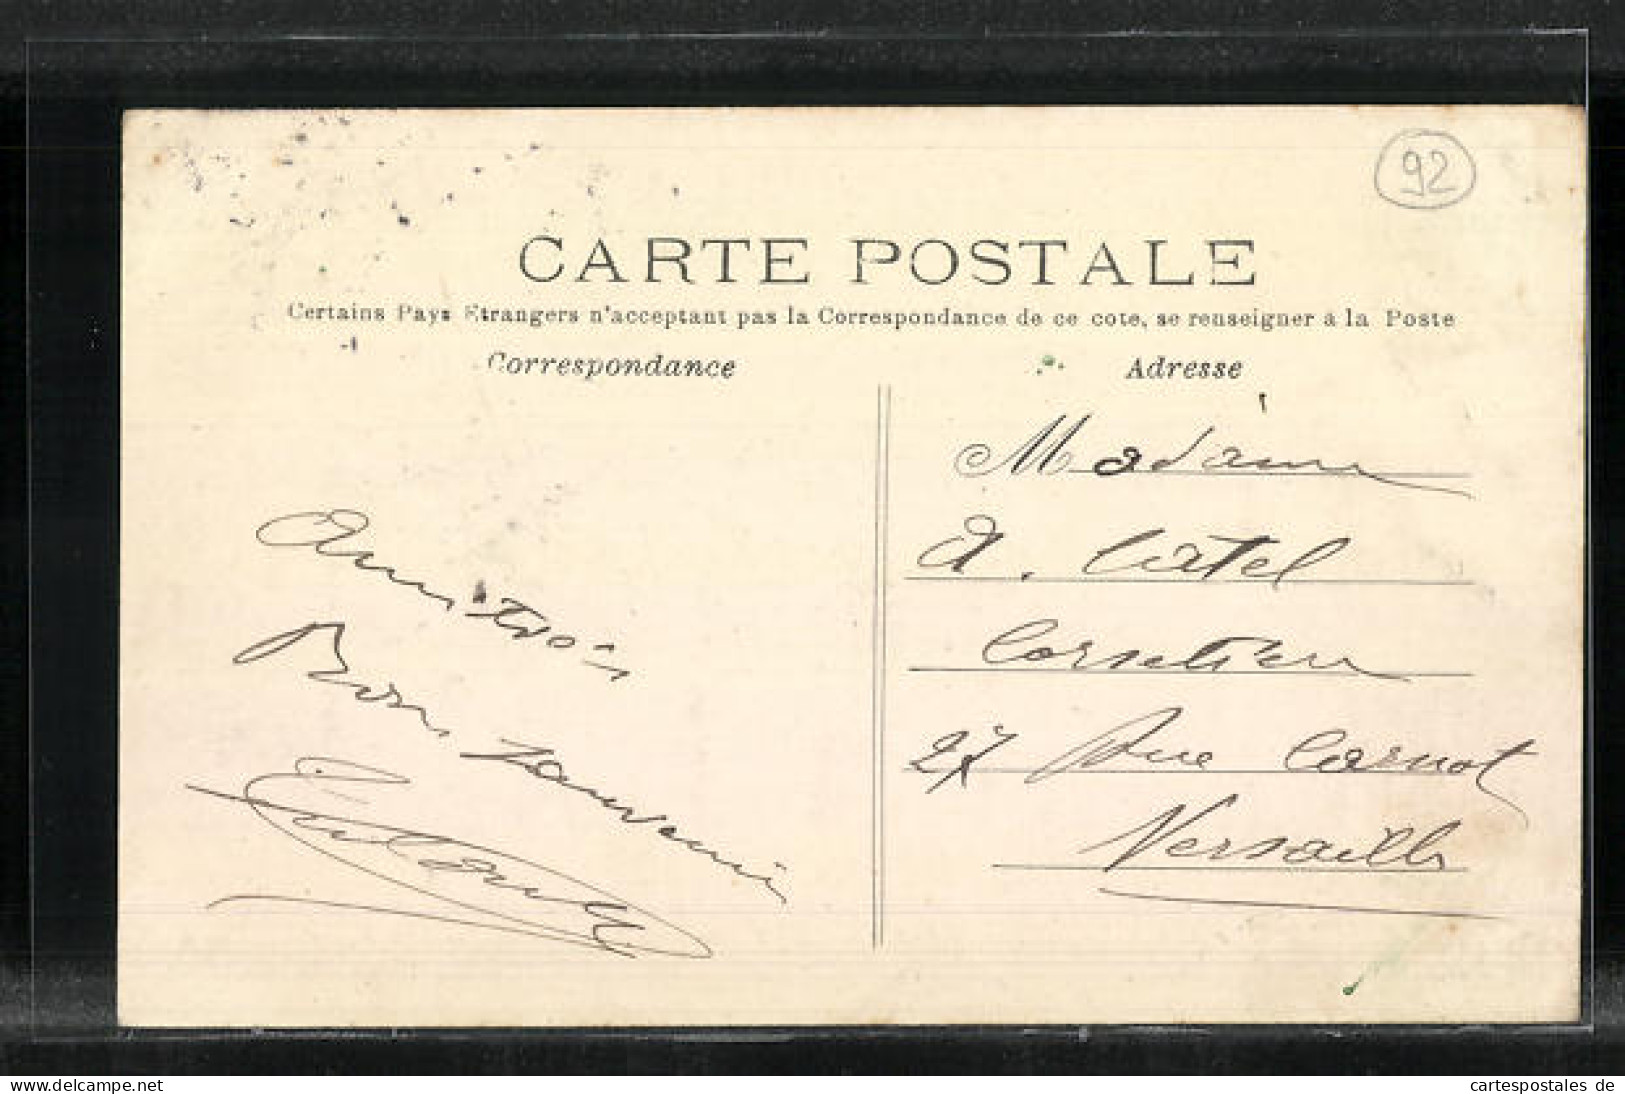 92
CARTE POSTALE
Certains Pays Etrangers n'acceptant pas la Correspondance de ce cote, se renseigner a la Poste
Correspondance
Adresse
Madame
A. Catel
Corsetière
27 Rue Carnot
Versailles
Bon souvenir
cartespostales de